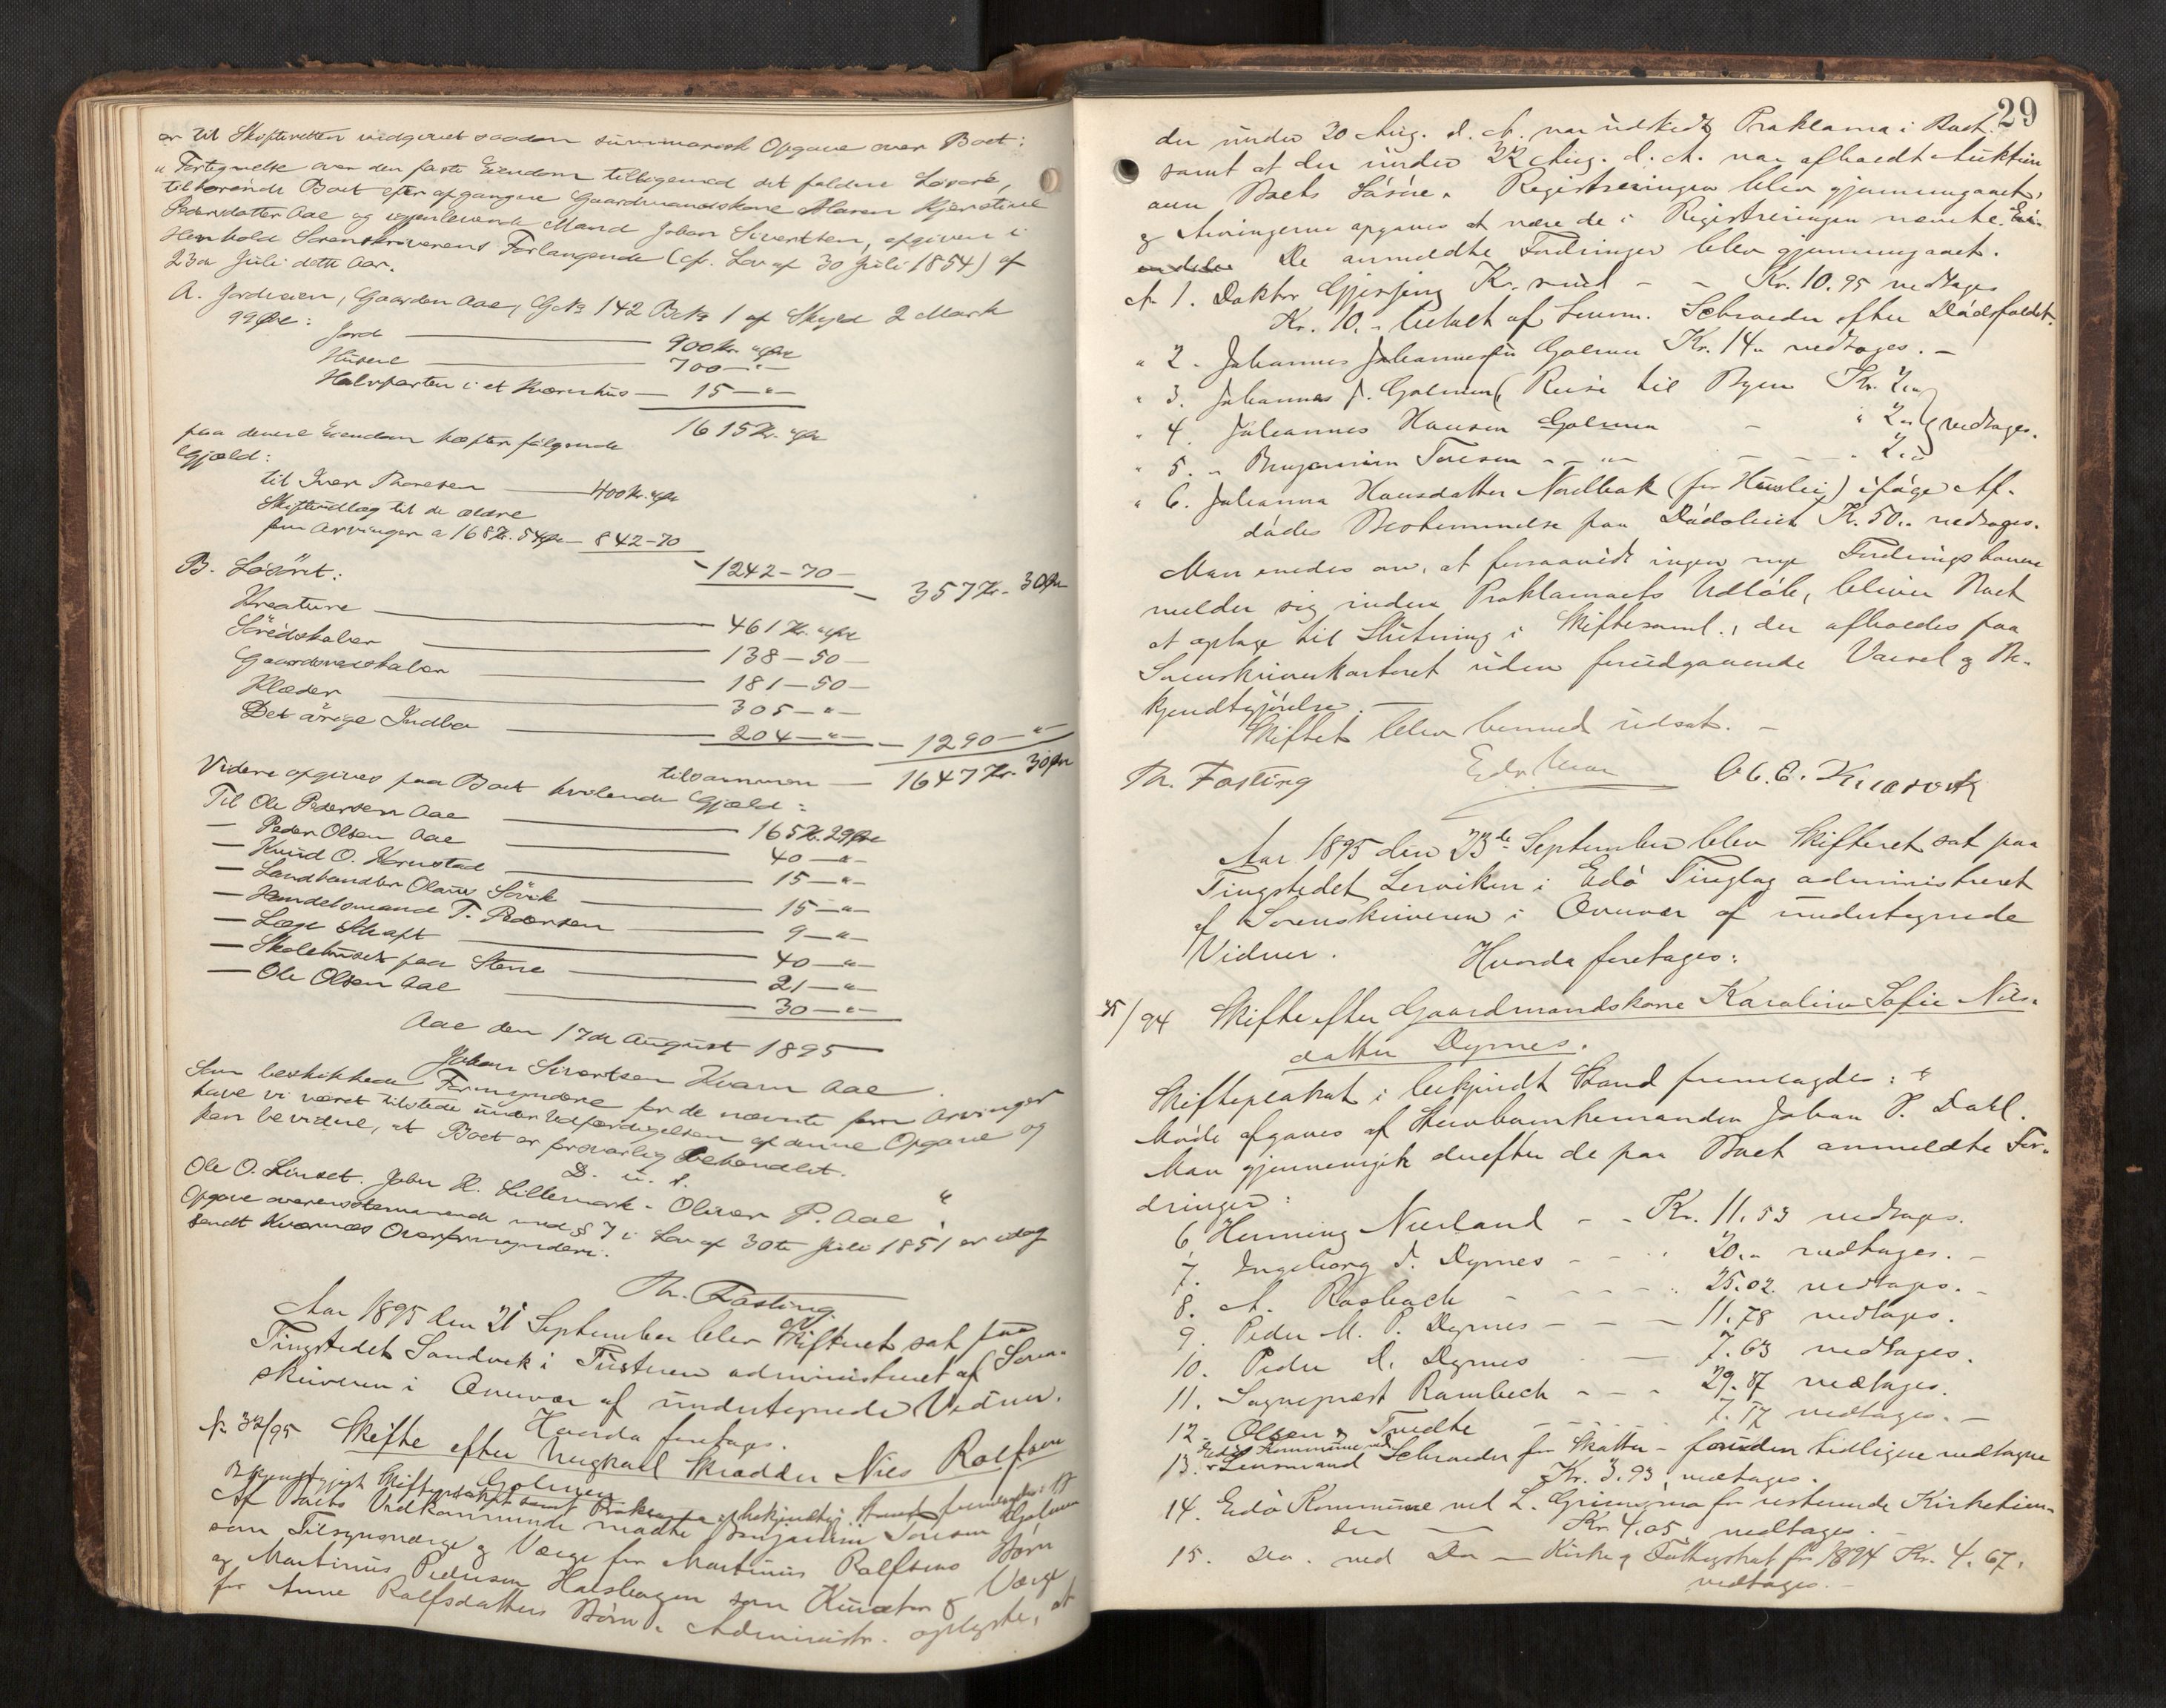 er til Skifteretten indgivet saadan summarisk Opgave over Boet:
"Fortegnelse over den faste Eiendom tilligemed det faldne Løsøre,
tilhørende Boet efter afgangne Gaardmandskone Maren Kjerstine
Pedersdatter Aae og igjenlevende Mand Johan Sivertsen, afgiven i
Henhold Sorenskriverens Forlangende (cfr. Lov af 30 Juli 1854) af
23de Juli dette Aar.
A. Jordveien, Gaarden Aae, G.No 142 B.No 1 af Skyld 2 Mark
99 Øre:
Jord — 900 Kr. " Øre
Husene — 700 — " —
Halvparten i et Kværnhus — 15 — " —
1615 Kr. " Øre
paa denne Eiendom hæfter følgende
Gjæld:
til Iver Thoresen — 400 Kr. " Øre
Skifteudlæg til de ældre
fem Arvinger a 168 Kr. 54 Øre — 842 - 70
1242 - 70 —
— 357 Kr. 30 Øre
B. Løsøret:
Kreature — 461 Kr. " Øre
Søredskaber — 138 — 50 —
Gaardsredskaber — 181 — 50 —
Klæder — 305 — " —
Det øvrige Indbo — 204 — " — — 1290 — "
tilsammen — 1647 Kr. 30 Øre
Videre opgives paa Boet hvilende Gjæld:
Til Ole Pedersen Aae — 165 Kr. 29 Øre
— Peder Olsen Aae — 40 — " —
— Knud O. Hornstad — 15 — " —
— Landhandler Olaus Sørvik — 15 — " —
— Handelsmand T. Pedersen — 9 — " —
— Læge Skaft — 40 — " —
— Skolehuset paa Stene — 21 — " —
— Ole Olsen Aae — 30 — " —
Aae den 17de August 1895
Johan Sivertsen Kvarn Aae.
Som beskikkede Formyndere for de nævnte fem Arvinger
have vi været tilstede under Udfærdigelsen af denne Opgave og
kan bevidne, at Boet er forsvarlig behandlet.
D. u. s.
Ole O. Linset. John K. Lillemork. Oliver P. Aae "
Opgave overensstemmende med § 7 i Lov af 30te Juli 1851 er idag
sendt Kværnes Overformynderi.
Th. Fasting.
Aar 1895 den 21 September blev Skifteret sat paa
Tingstedet Sandvik i Tusteren administreret af Soren-
skriveren i Overvær af undertegnede Vidner.
Hvorda foretages.
No 32/95 Skifte efter Ungkarl Skrædder Nils Rolfsen
Golmen
Bekjendtgjort Skifteplakat samt Proklama i bekjendtgj. Stand fremlagdes
Af Boets Vedkommende mødte Benjamin Toresen Golmen
som Tilsynsværge og Værge for Martinus Rolfsens Børn
og Martinus Pedersen Halshagen som Kurator og Værge
for Anne Rolfsdatters Børn. Administr. oplyste, at
29
der under 20 Aug. d. A. var udstedt Proklama i Boet
samt at der under 22 Aug. d. A. var afholdt Auktion
over Boets Løsøre. Registreringen blev gjennemgaaet,
og Arvingerne opgaves at være de i Registreringen nævnte.
De anmeldte Fordringer blev gjennemgaaet.
No 1. Doktor Gjersjing Kr. - - Kr. 10.95 vedtages
Kr. 10. - betalt af Lensm. Schrøder efter Dødsfaldet.
" 2. Johannes Johannessen Golmen Kr. 14" vedtages. —
" 3. Johannes J. Golmen (Reise til Byen Kr. 2"
" 4. Johannes Hansen Golmen — " 2" vedtages.
" 5. " Benjamin Toresen - - " - - - " 2."
" 6. Johanna Hansdatter Nordbak (for Husleie) ifølge Af-
dødes Bestemmelse paa Dødsleiet Kr. 50" vedtages.
Man enedes om, at forsaavidt ingen nye Fordringshavere
melder sig inden Proklamaets Udløb, bliver Boet
at optage til Slutning i Skiftesaml., der afholdes paa
Sorenskriverkontoret uden forudgaaende Varsel og Be-
kjendtgjørelse. —
Skiftet blev hermed udsat. —
Th. Fasting
Aar 1895 den 23de September blev Skifteret sat paa
Tingstedet Lerviken i Edø Tinglag administreret
af Sorenskriveren i Overvær af undertegnede
Vidner. Hvorda foretages:
35/94 Skifte efter Gaardmandskone Karoline Sofie Nils-
datter Dyrnes.
Skifteplakat i bekjendt Stand fremlagdes:
Møde afgaves af Stervboenkemanden Johan P. Dahl.
Man gjennemgik derefter de paa Boet anmeldte For-
dringer:
6. Henning Neerland - - Kr. 11.53 vedtages.
7. Ingeborg J. Dyrnes - - " 20." vedtages. —
8. A. Rosbach - - - - " 25.02 vedtages. —
9. Peder M. P. Dyrnes - - - 11.78 vedtages.
10. Peder D. Dyrnes - — 7.63 vedtages.
11. Sogneprest Rambech - - - 29.87 vedtages.
12. Olsen & Tvedte - - - - 7.17 vedtages. —
13. Edø Kommune ved Lensmand Schrøder for Skatter - foruden tidligere vedtagne
Kr. 3.93 vedtages.
14. Edø Kommune ved L. for resterende Kirketien-
der — Kr. 4.05 vedtages. —
15. Do. ved Do — Kirke og Fattigskat for 1894 Kr. 4.67.
vedtages. —